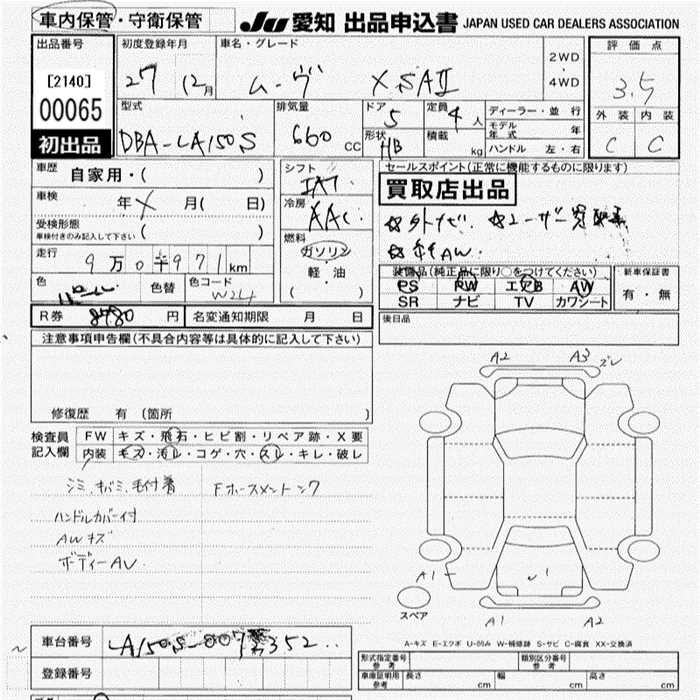 車内保管・守衛保管
JU 愛知 出品申込書 JAPAN USED CAR DEALERS ASSOCIATION
出品番号 初度登録年月 車名・グレード 2WD・4WD 評価点
[2140]
00065
初出品
27 12月 ムーヴ X SAⅡ 3.5
型式 排気量 ドア 定員 ディーラー・並行 外装 内装
DBA-LA150S 660 CC 5 4人 モデル年式 年 C C
形状 HB 積載 kg ハンドル 左・右
車歴 自家用・( )
シフト IAT
セールスポイント(正常に機能するものに限ります)
買取店出品
車検 年 X 月( 日)
冷房 AAC
受検形態 ( )
車検付きのみ記入して下さい
燃料 ガソリン 軽・油 ( )
☆外ナビ ☆ユーザー買取車
☆純正AW
走行 9万0千971km
色 色替 色コード W24
装備品(純正品に限り○をつけてください) 新車保証書
PS PW エアB AW 有・無
SR ナビ TV カワシート
R券 8480円 名変通知期限 月 日
後日品
注意事項申告欄(不具合内容等は具体的に記入して下さい)
修復歴 有 (箇所 )
検査員記入欄 FW キズ・飛石・ヒビ割・リペア跡・X要
内装 キズ・汚レ・コゲ・穴・スレ・キレ・破レ
シミ、キバミ、毛付着 Fホースメントシワ
ハンドルカバー付
AWキズ
ボディーAU
A2 A3 ズレ
A1 A1 A2
スペア
A-キズ E-エクボ U-凹み W-補修跡 S-サビ C-腐食 XX-交換済
車台番号 LA150S-
登録番号
形式指定番号 参考 類別区分番号 参考
車庫証明用 参考 長さ cm 幅 cm 高さ cm